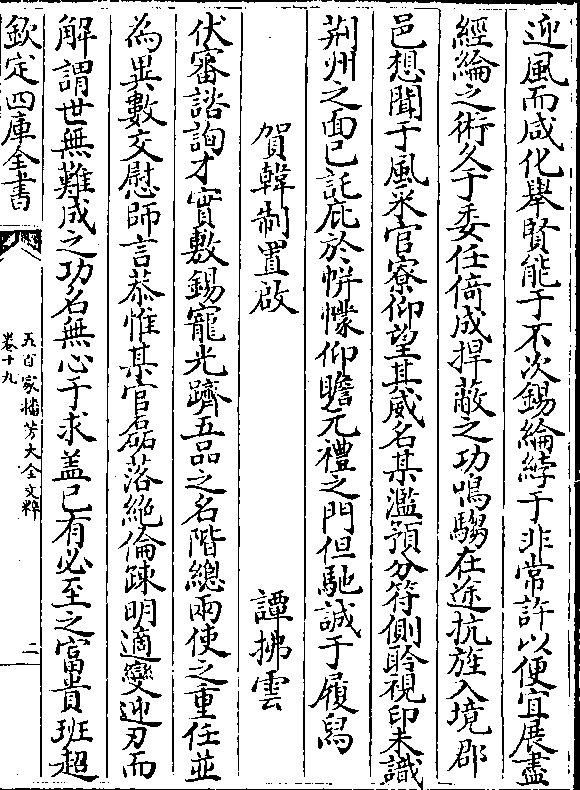 迎風而咸化舉賢能于不次錫綸綍于非常許以便宜展盡
經綸之術久于委任倚成捍蔽之功鳴騶在途抗旌入境郡
邑想聞于風采官寮仰望其威名某濫預分符側聆視印未識
荆州之面已託庇於帡幪仰瞻元禮之門但馳誠于履舄
賀韓制置啟 譚拂雲
伏審諮詢才實敷錫寵光躋五品之名階總兩使之重任並
為異數交慰師言恭惟某官磊落絶倫疎明適變迎刃而
解謂世無難成之功名無心于求盖已有必至之富貴班超
欽定四庫全書
五百家播芳大全文粹
卷十九
二